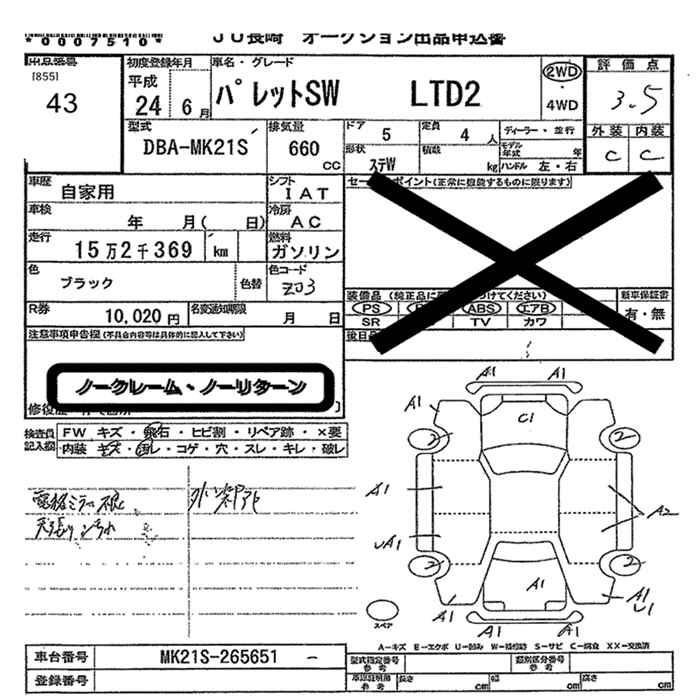 *0007510*
JU長崎 オークション出品申込書
出品番号
[855]
43
初度登録年月
平成
24 6月
車名・グレード
パレットSW LTD2
2WD
4WD
評価点
3.5
外装 内装
C C
型式
DBA-MK21S
排気量
660
CC
ドア 5
定員 4 人
ディーラー・並行
形状
ステW
積載 kg
モデル年式 年
ハンドル 左・右
車歴
自家用
シフト
IAT
車検
年 月( 日)
冷房
AC
走行
15万2千369 km
燃料
ガソリン
色
ブラック
色替
色コード
Z03
R券
10,020円
名変通知期限
月 日
セールスポイント(正常に機能するものに限ります)
装備品
PS ABS エアB
SR TV カワ
新車保証書
有・無
後日品
注意事項申告欄(不具合内容等は具体的に記入して下さい)
ノークレーム・ノーリターン
検査員
記入欄
FW キズ・飛石・ヒビ割・リペア跡・×要
内装 キズ・汚レ・コゲ・穴・スレ・キレ・破レ
電格ミラー不良
天張りシミ
A1 A1
A1
C1
2 2
A1
A2
UA1
2 2
A1
A1
A1
U1
A1 A1
スペア
A-キズ E-エクボ U-凹み W-補修跡 S-サビ C-腐食 XX-交換済
車台番号
MK21S-265651 -
登録番号
型式指定番号
参考
類別区分番号
参考
車認証明書
参考
長さ cm
幅 cm
高さ cm